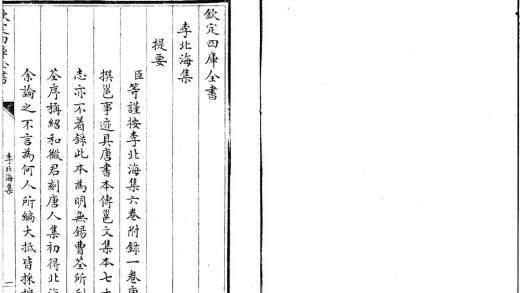 欽定四庫全書
李北海集
提要
臣等謹按李北海集六卷附錄一卷唐
撰邕事迹具唐書本傳邕文集本七十
志亦不着錄此本為明無錫曹荃所刋
荃序稱紹和徵君刻唐人集初得北海
余論之不言為何人所編大抵皆採摭
李北海集
一